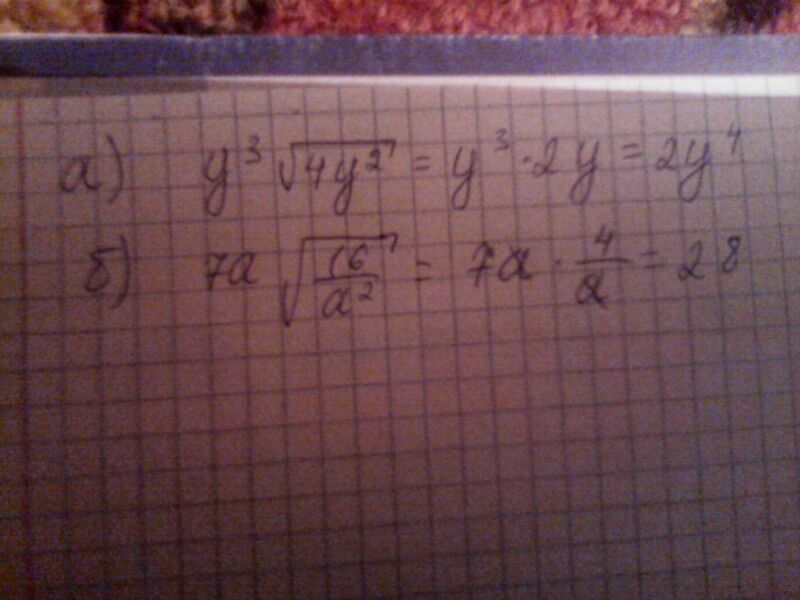 а) y³ √4y² = y³ · 2y = 2y⁴
б) 7a √(16/a²) = 7a · 4/a = 28